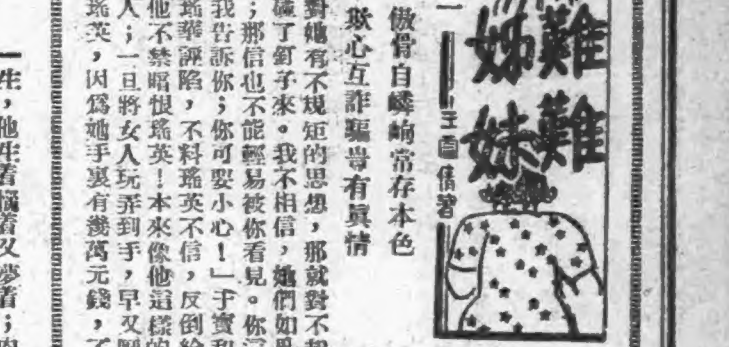 難難
姊妹
一
王倩著
傲骨自嶙峋常存本色
欺心互詐騙豈有眞情
對她有不規矩的思想，那就對不
了釘子來。我不相信，她們如
；那信也不能輕易被你看見。你
我告訴你；你可要小心！」于寶和
瑤華誣陷，不料瑤英不信，反倒給
他不禁暗恨瑤英！本來像他這樣的
人；一旦將女人玩弄到手，早又
瑤英，因爲她手裏有幾萬元錢，不
生，他生着着又夢着；